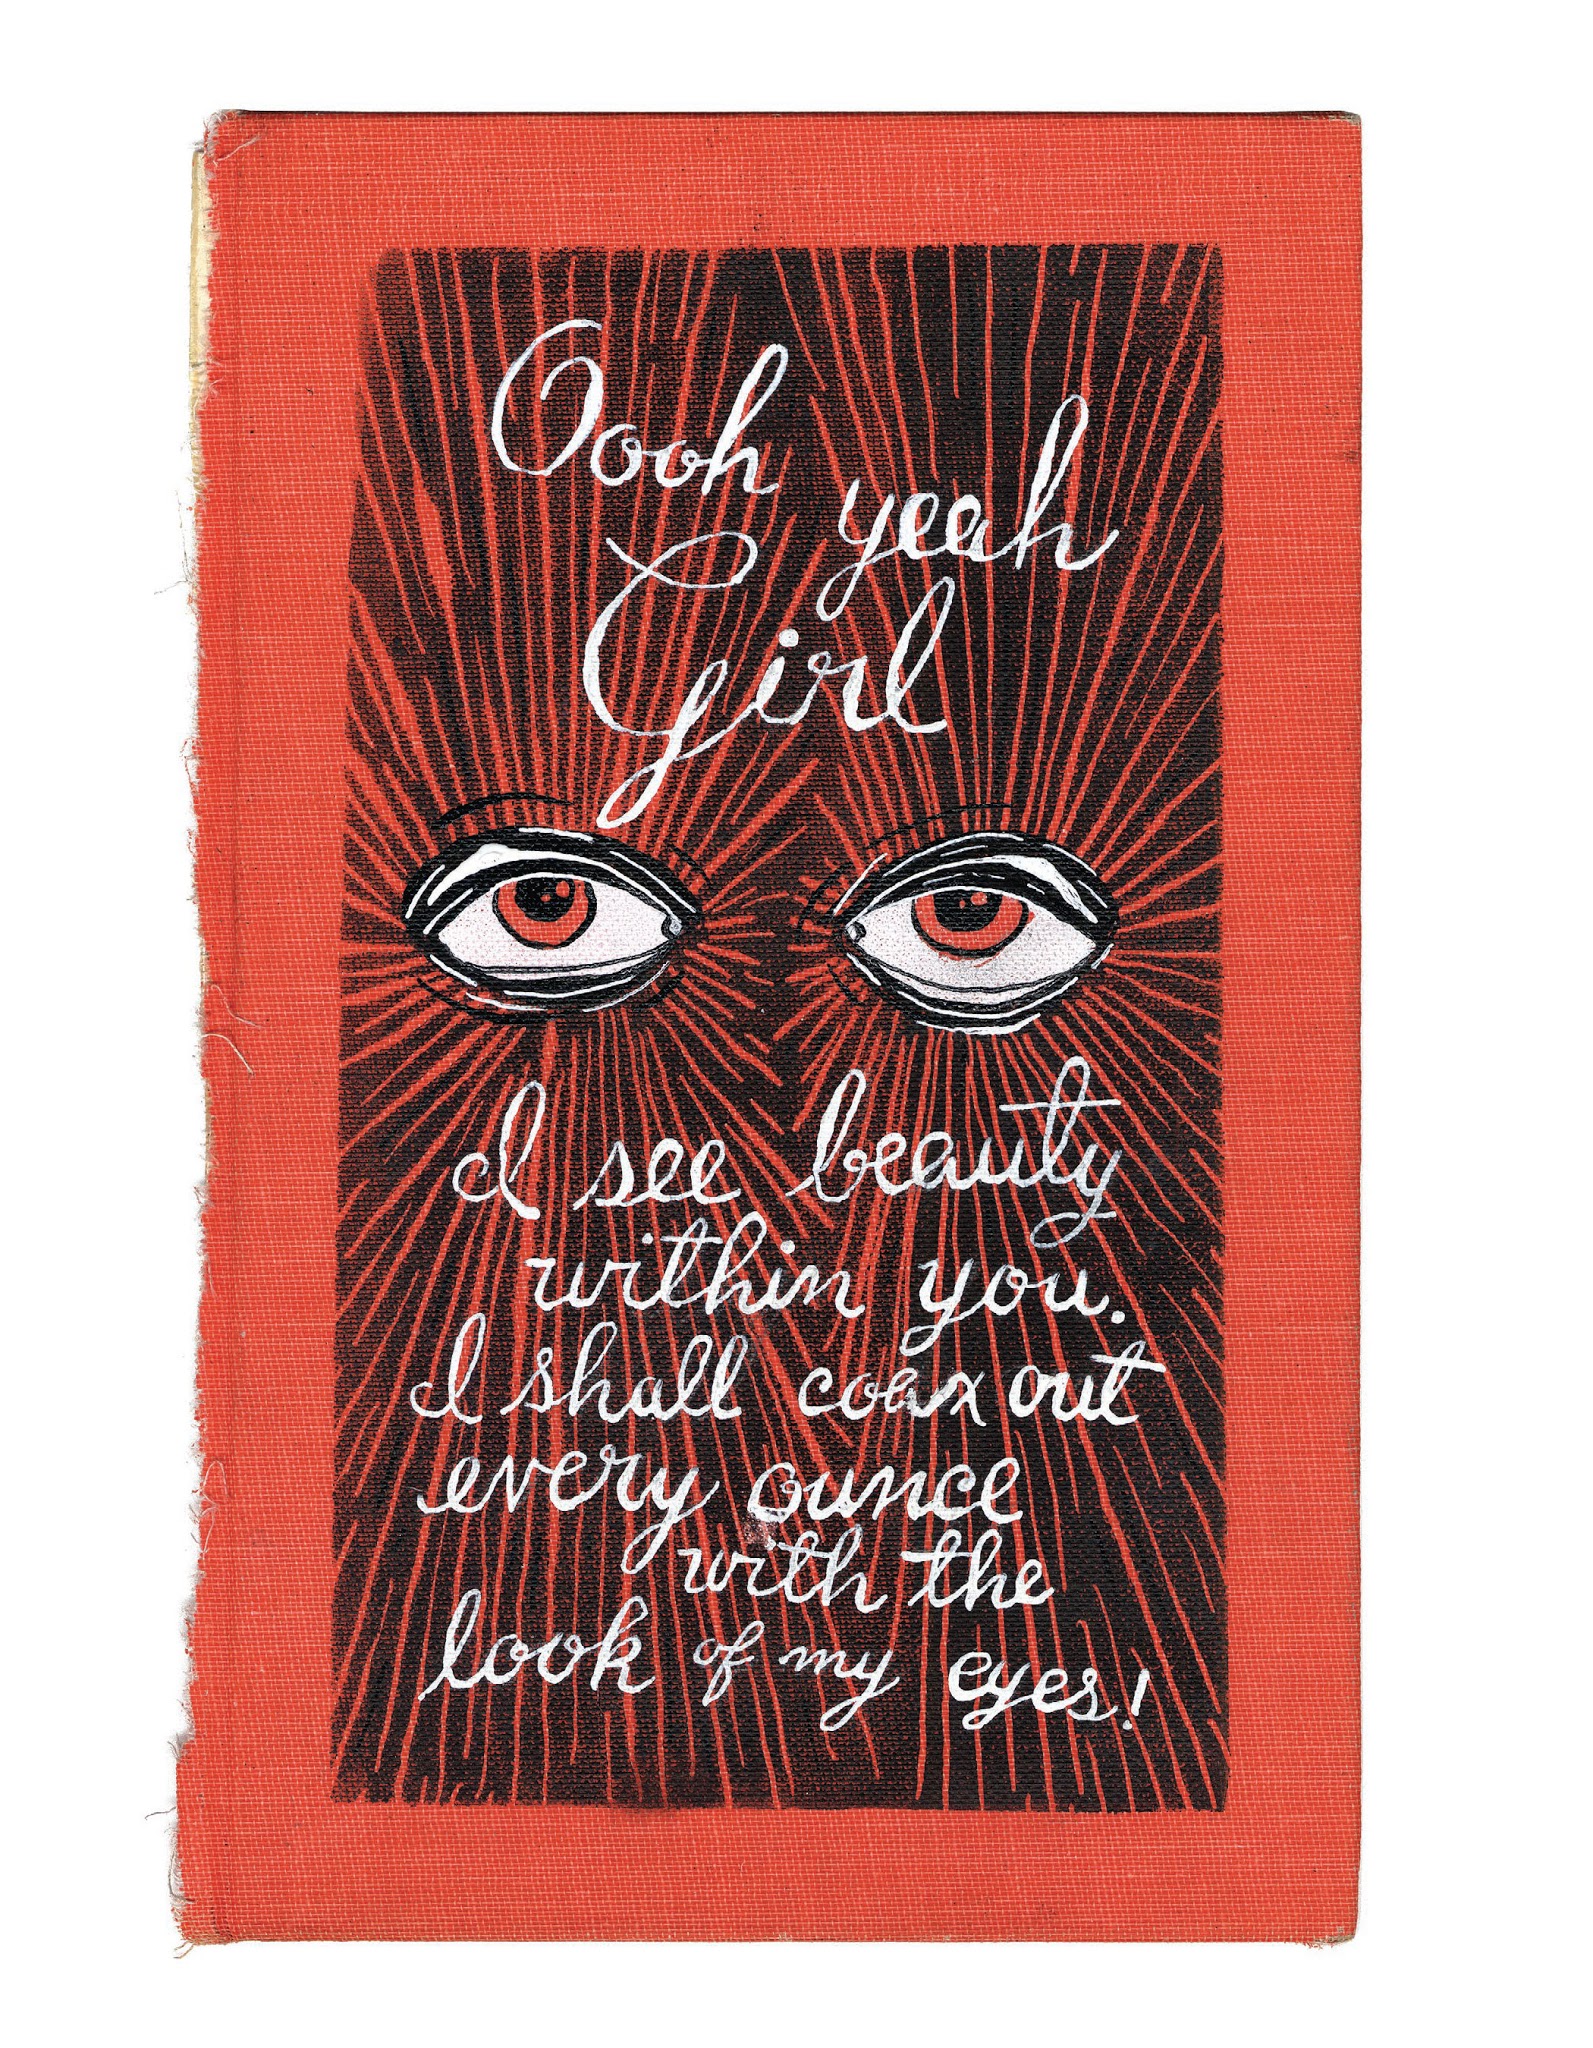 Oooh yeah
Girl
I see beauty
within you.
I shall coax out
every ounce
with the
look of my eyes!